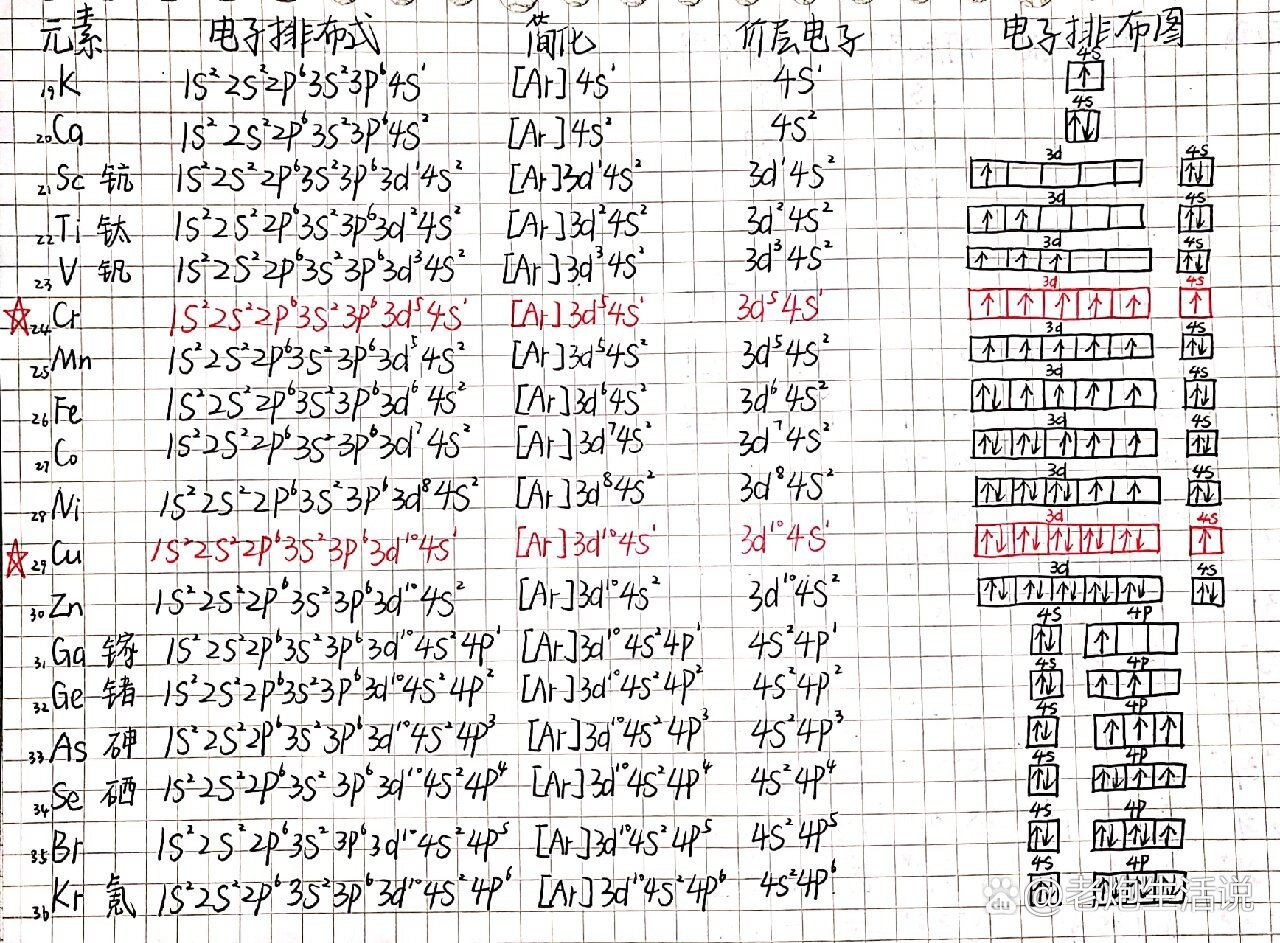 元素 电子排布式 简化 价层电子 电子排布图
4s
₁₉K 1S²2S²2P⁶3S²3P⁶4S¹ [Ar]4S¹ 4S¹ ↑
4s
₂₀Ca 1S²2S²2P⁶3S²3P⁶4S² [Ar]4S² 4S² ↑↓
3d 4s
₂₁Sc 钪 1S²2S²2P⁶3S²3P⁶3d¹4S² [Ar]3d¹4S² 3d¹4S² ↑ ↑↓
3d 4s
₂₂Ti 钛 1S²2S²2P⁶3S²3P⁶3d²4S² [Ar]3d²4S² 3d²4S² ↑ ↑ ↑↓
3d 4s
₂₃V 钒 1S²2S²2P⁶3S²3P⁶3d³4S² [Ar]3d³4S² 3d³4S² ↑ ↑ ↑ ↑↓
3d 4s
☆₂₄Cr 1S²2S²2P⁶3S²3P⁶3d⁵4S¹ [Ar]3d⁵4S¹ 3d⁵4S¹ ↑ ↑ ↑ ↑ ↑ ↑
3d 4s
₂₅Mn 1S²2S²2P⁶3S²3P⁶3d⁵4S² [Ar]3d⁵4S² 3d⁵4S² ↑ ↑ ↑ ↑ ↑ ↑↓
3d 4s
₂₆Fe 1S²2S²2P⁶3S²3P⁶3d⁶4S² [Ar]3d⁶4S² 3d⁶4S² ↑↓ ↑ ↑ ↑ ↑ ↑↓
3d 4s
₂₇Co 1S²2S²2P⁶3S²3P⁶3d⁷4S² [Ar]3d⁷4S² 3d⁷4S² ↑↓ ↑↓ ↑ ↑ ↑ ↑↓
3d 4s
₂₈Ni 1S²2S²2P⁶3S²3P⁶3d⁸4S² [Ar]3d⁸4S² 3d⁸4S² ↑↓ ↑↓ ↑↓ ↑ ↑ ↑↓
3d 4s
☆₂₉Cu 1S²2S²2P⁶3S²3P⁶3d¹⁰4S¹ [Ar]3d¹⁰4S¹ 3d¹⁰4S¹ ↑↓ ↑↓ ↑↓ ↑↓ ↑↓ ↑
3d 4s
₃₀Zn 1S²2S²2P⁶3S²3P⁶3d¹⁰4S² [Ar]3d¹⁰4S² 3d¹⁰4S² ↑↓ ↑↓ ↑↓ ↑↓ ↑↓ ↑↓
4s 4P
₃₁Ga 镓 1S²2S²2P⁶3S²3P⁶3d¹⁰4S²4P¹ [Ar]3d¹⁰4S²4P¹ 4S²4P¹ ↑↓ ↑
4s 4P
₃₂Ge 锗 1S²2S²2P⁶3S²3P⁶3d¹⁰4S²4P² [Ar]3d¹⁰4S²4P² 4S²4P² ↑↓ ↑ ↑
4s 4P
₃₃As 砷 1S²2S²2P⁶3S²3P⁶3d¹⁰4S²4P³ [Ar]3d¹⁰4S²4P³ 4S²4P³ ↑↓ ↑ ↑ ↑
4s 4P
₃₄Se 硒 1S²2S²2P⁶3S²3P⁶3d¹⁰4S²4P⁴ [Ar]3d¹⁰4S²4P⁴ 4S²4P⁴ ↑↓ ↑↓ ↑ ↑
4s 4P
₃₅Br 1S²2S²2P⁶3S²3P⁶3d¹⁰4S²4P⁵ [Ar]3d¹⁰4S²4P⁵ 4S²4P⁵ ↑↓ ↑↓ ↑↓ ↑
4s 4P
₃₆Kr 氪 1S²2S²2P⁶3S²3P⁶3d¹⁰4S²4P⁶ [Ar]3d¹⁰4S²4P⁶ 4S²4P⁶ ↑↓ ↑↓ ↑↓ ↑↓
du @老炮生活说